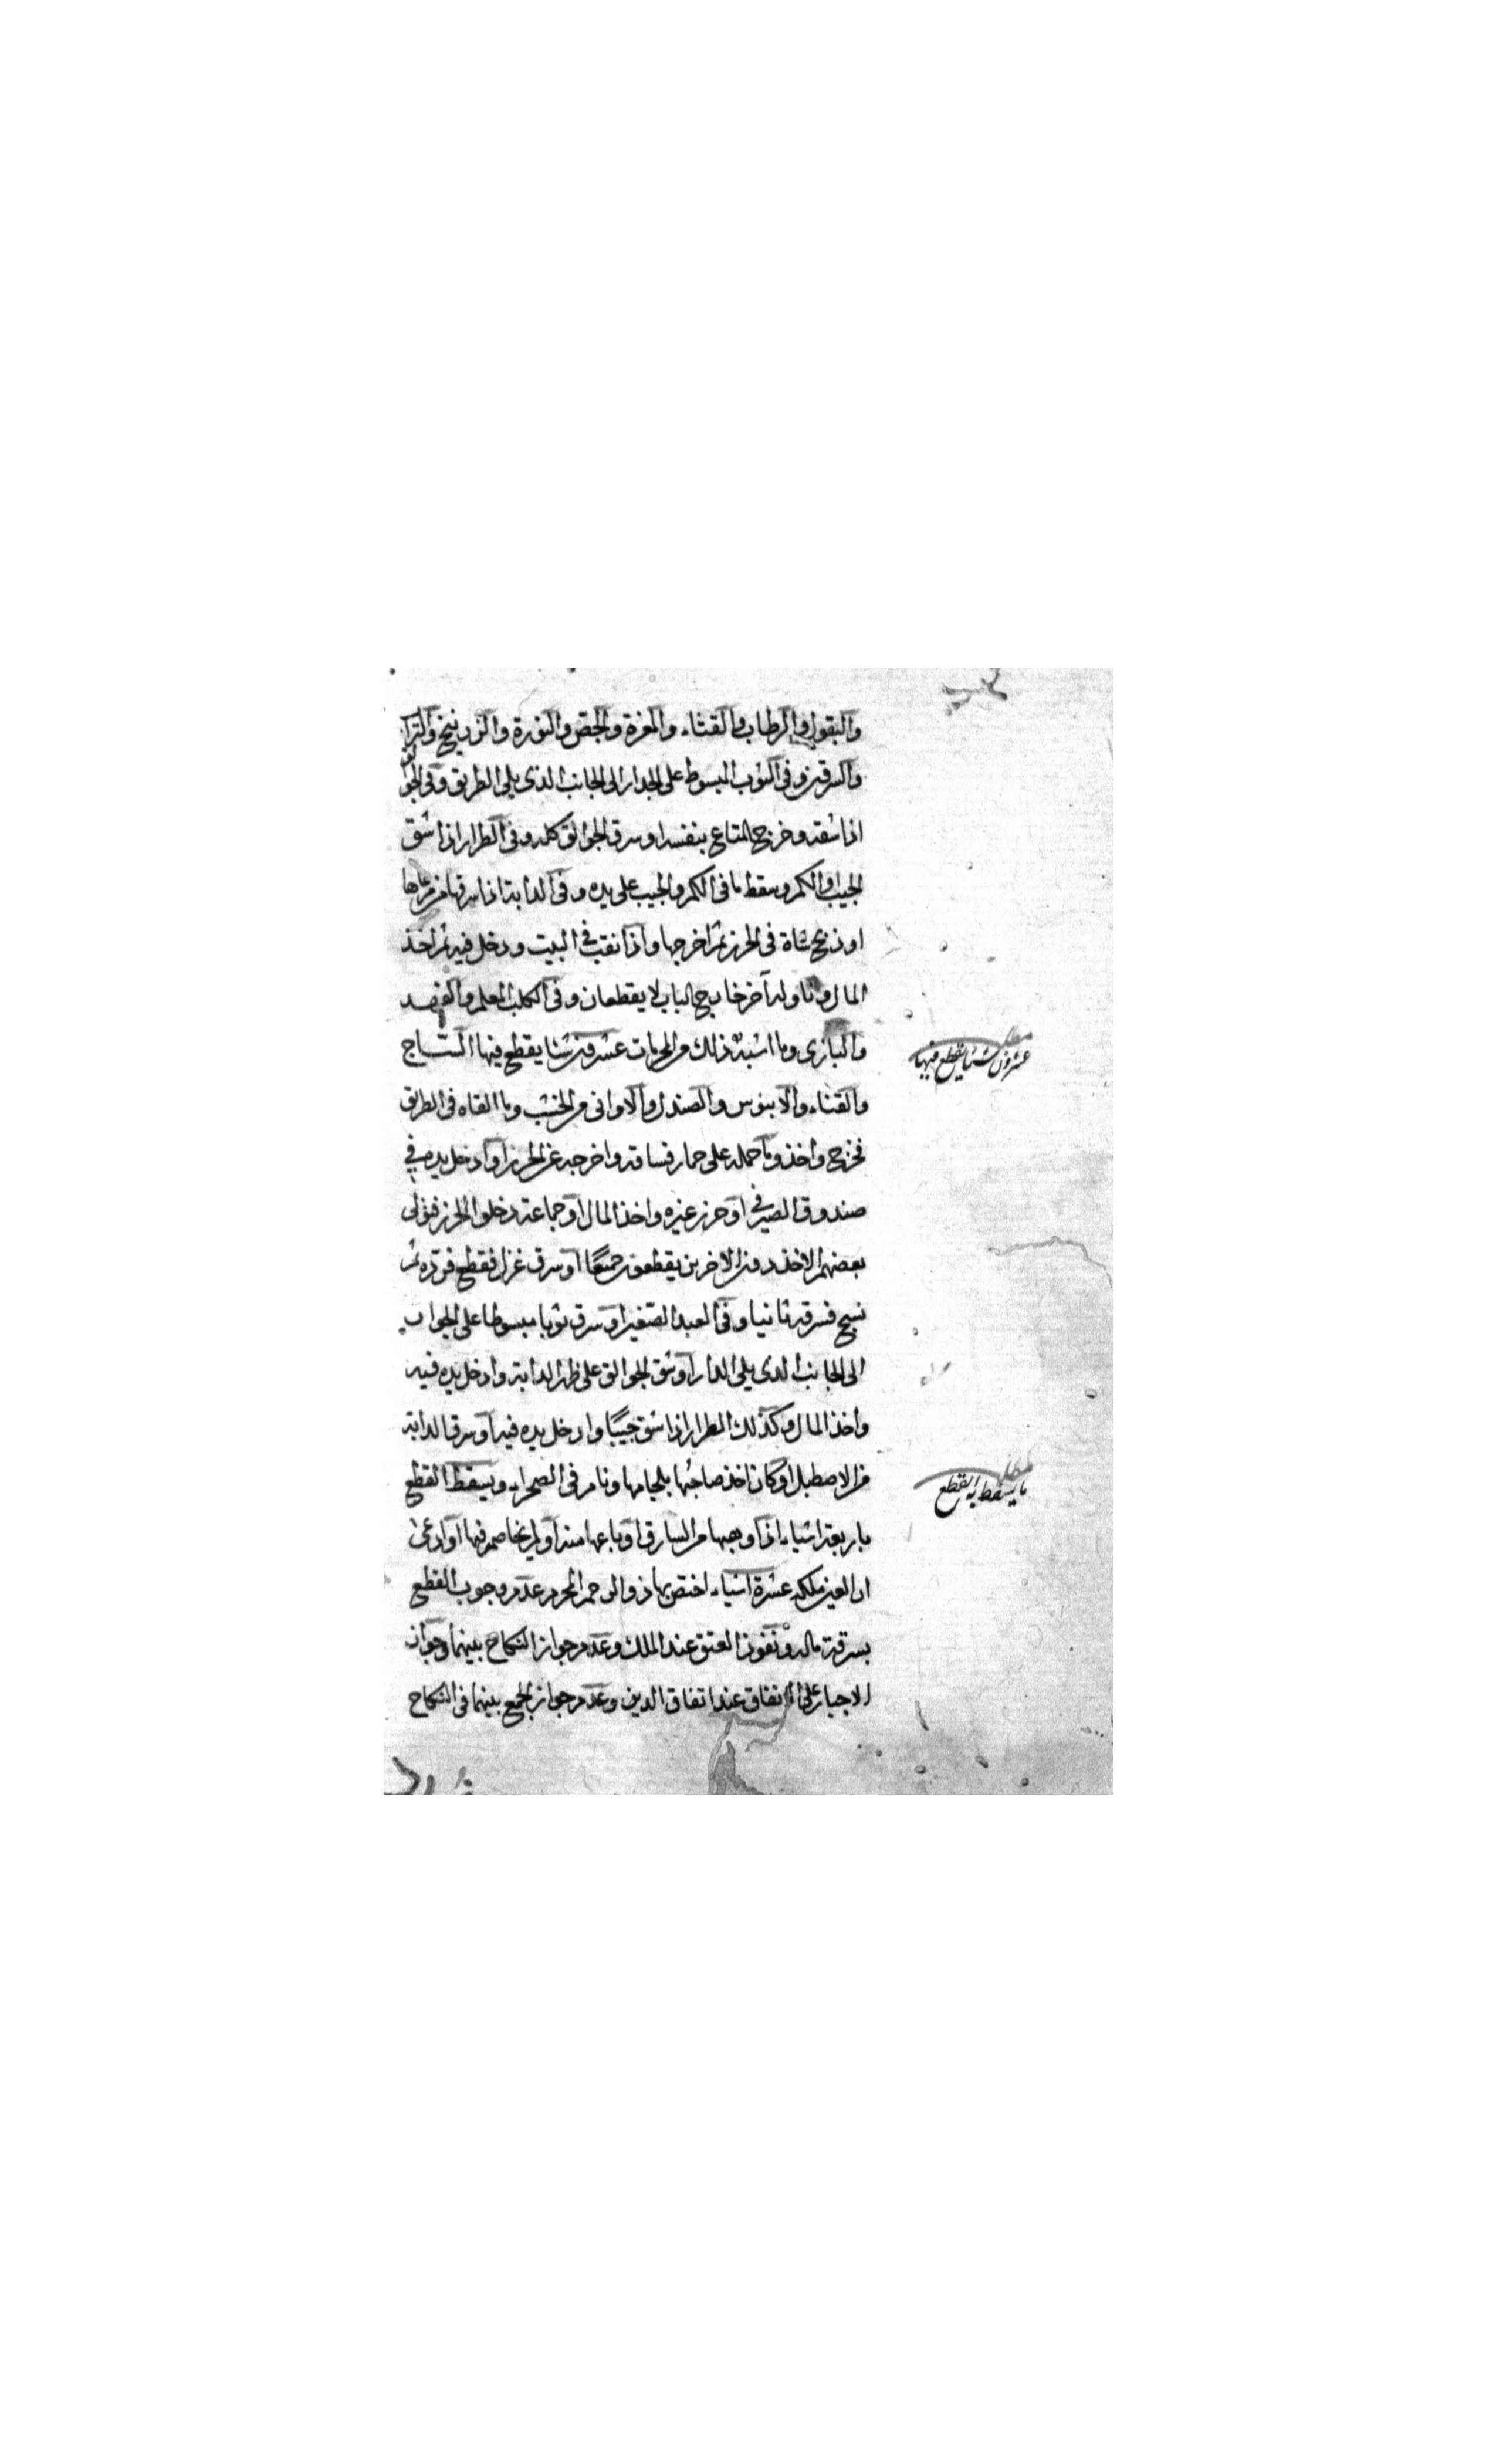 والبقول والرطاب والقثاء والمغرة والجص والنورة والزرنيخ والتراب
والسرقين وفى الثوب المبسوط على الجدار الى الجانب الذى يلى الطريق وفى الجوالق
اذا شقه وخرج المتاع بنفسه او سرق الجوالق كله وفى الطرار اذا شق
الجيب او الكم وسقط ما فى الكم والجيب على يده وفى الدابة اذا سرقها من مرعاها
او ذبح شاة فى الحرز ثم اخرجها واذا نقب فى البيت ودخل فيه ثم اخذ
المال وناوله آخر خارج الباب لا يقطعان وفى الكلب المعلم والفهد
والبازى وما اشبه ذلك من المحرمات عشرون شئا يقطع فيها الساج
والقناء والابنوس والصندل والاوانى من الخشب وما القاه فى الطريق
فخرج واخذ وما حمله على حمار فساقه واخرجه عن الحرز او ادخل يده فى
صندوق الصيرفى او حرز غيره واخذ المال او جماعة دخلوا الحرز فولى
بعضهم الاخذ دون الاخرين يقطعون جميعًا او سرق غزل فقطع فرده ثم
نسج فسرقه ثانيا وفى العبد الصغير او سرق ثوبا مبسوطا على
الى الجانب الذى يلى الدار او شق الجوالق على ظهر الدابة وادخل يده فيه
واخذ المال وكذلك الطرار اذا شق جيبًا وادخل يده فيه او سرق الدابة
من الاصطبل او كان اخذ صاحبُها بلجامها ونام فى الصحراء ويسقط القطع
باربعة اشياء اذا وهبها من السارق او باعها منه او لم يخاصم فيها او ادعى
ان العين ملكه عشرة اشياء اختص بها ذوالرحم المحرم عدم وجوب القطع
بسرقة ماله ونفوذ العتق عند الملك وعدم جواز النكاح بينهما وجواز
الاجبار على الانفاق عند اتفاق الدين وعدم جواز الجمع بينهما فى النكاح
مطلب
عشرون شئا يقطع فيها
مطلب
ما يسقط به القطع